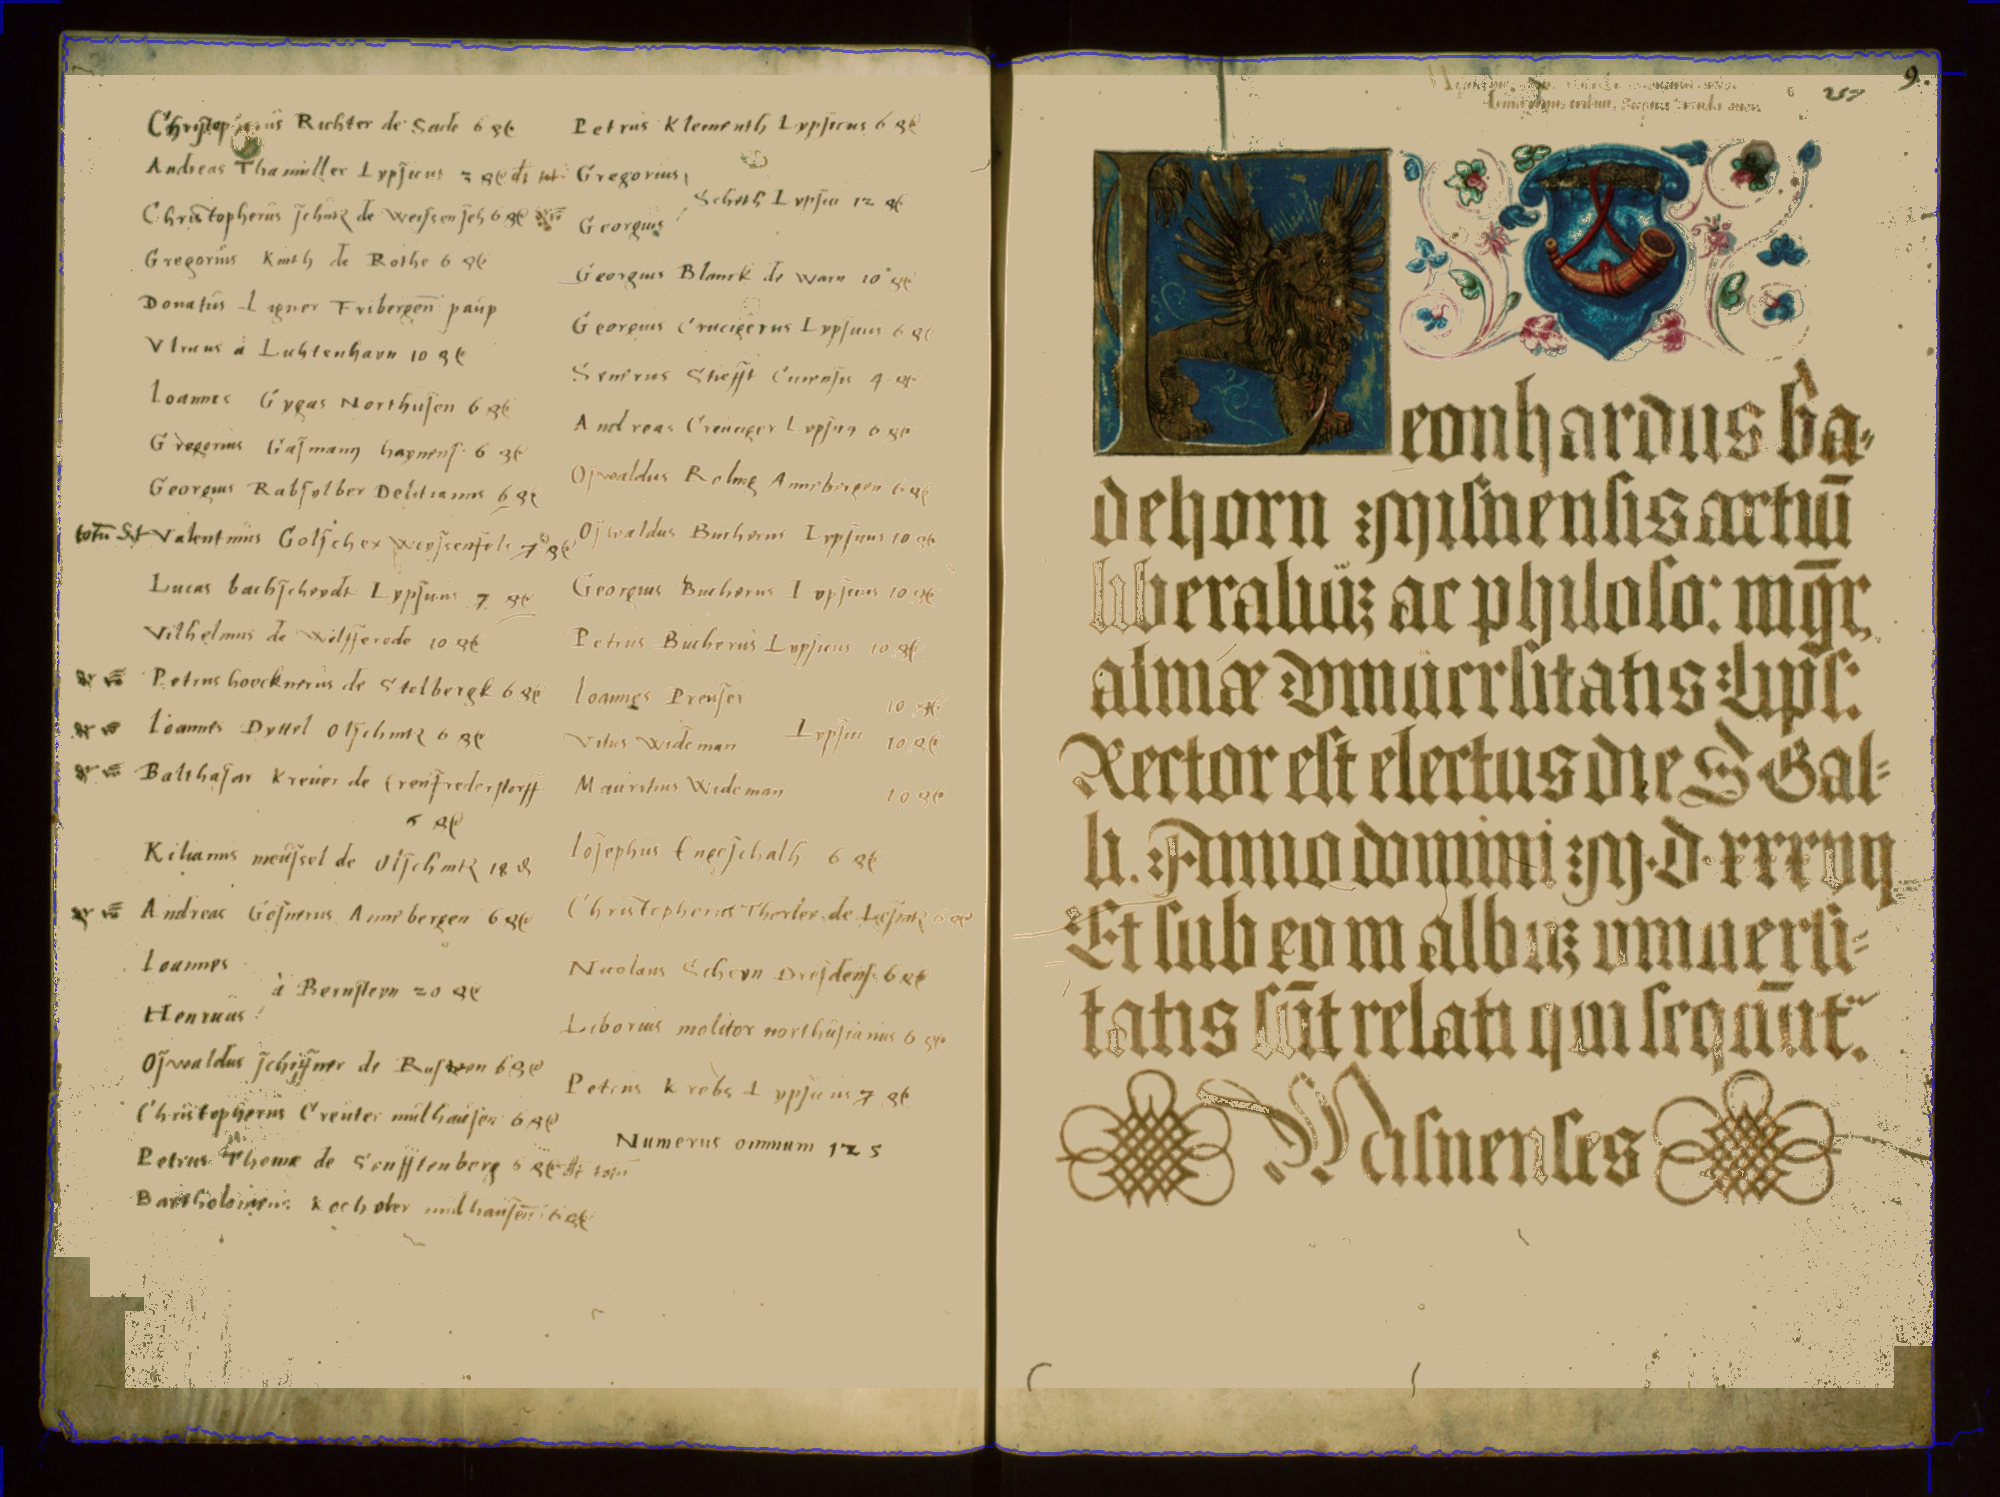 Christophorus Richter de Sade 6 gͤ
Andreas Thamüller Lypsicus
Christopherus Schmitz de Weissensehe 6 g
Gregorius Knoth de Rothe 6 g
Donatus Ligner Fribergen̄ paup
Vlricus à Luchtenhayn 10 g
Ioannes Gygas Northusen 6 g
Gregorius Gasmann haynens: 6 g
Georgius Rabsolber Delitianus 6 g
totū dt Valentinus Golscher Weyssenfels 7 g
Lucas bachscheydt Lypsicus 7 g
Vilhelmus de Wilsserode 10 g
Petrus hoecknerus de Stolbergk 6 g
Ioannes Dyttel Olschnitz 6 g
Balthasar Kreuer de Crenfrederstorff
6 g
Kilianus meüssel de Olschnitz 18 d
Andreas Gösnerus Annebergen 6 g
Ioannes
à Bernsteyn 20 g
Henricus
Oswaldus Schiffner de 6 g
Christopherus Creuter mülhausen 6 g
Petrus Thomæ de Senfftenberg 6 g dt totū
Bartholomeus Koch ober mülhausen 6 g
Petrus Klementh Lypsicus 6 g
Gregorius
Scheth Lypsici 12 g
Georgius
Georgius Blanck de Warn 10 g
Georgius Crucigerus Lypsicus 6 g
Stiefft 4 g
Andreas Creuciger Lypsicus 6 g
Oswaldus Annebergen 6 g
Oswaldus Bucherus Lypsicus 10 g
Georgius Bucherus Lypsicus 10 g
Petrus Bucherus Lypsicus 10 g
Ioannes Preusser 10 g
Vitus Wideman Lypsici 10 g
Mauritius Wideman 10 g
Iosephus Engeschalh 6 g
Christopherus Thorler de 6 g
Nicolaus Scheyn Dresdens: 6 g
Liborius molitor northusianus 6 g
Petrus Krebs Lypsicus 7 g
Numerus omnium 125
9.
Leonhardus ba⸗
dehorn Misnensis artiū
liberaliūꝫ ac philoso: mgr̄,
almæ Vniuersitatis Lips:
Rector est electus die S Gal⸗
li. Anno domini M·D·xxxvij
Et sub eo in albūꝫ vniuersi⸗
tatis sūt relati qui sequūt:
Misnenses